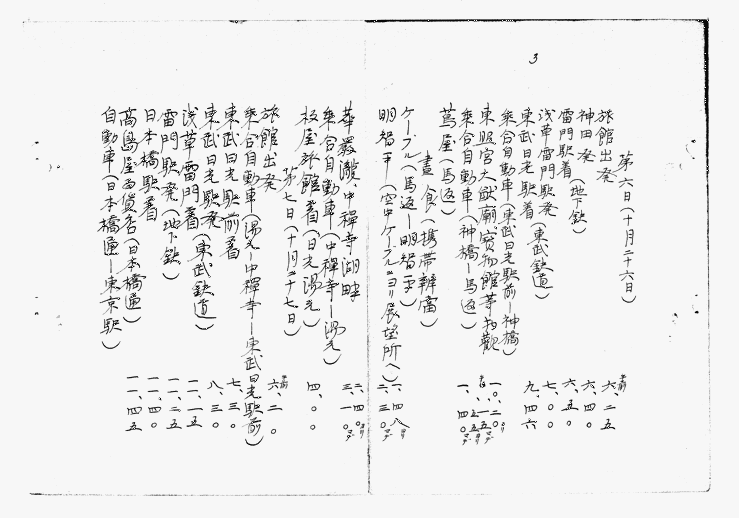 3
第六日(十月二十六日)
旅館出発 午前 六、二五
神田発 六、四〇
雷門駅着(地下鉄) 六、五〇
浅草雷門駅発 七、〇〇
東武日光駅着(東武鉄道) 九、四六
乗合自動車(東武日光駅前―神橋)
東照宮大猷廟、宝物館等拝観 一〇、二〇ヨリ
乗合自動車(神橋―馬返) 一、四〇
蔦屋(馬返)
昼食(携帯辨當)
ケーブル(馬返―明智平) 一、四八ヨリ
明智平(空中ケーブルニヨリ展望所ヘ) 二、三〇マデ
華厳瀧、中禪寺湖畔 二、四〇ヨリ 三、一〇マデ
乗合自動車(中禪寺―湯元)
板屋旅館着(日光湯元) 四、〇〇
第七日(十月二十七日)
旅館出発 午前 六、二〇
乗合自動車(湯元―中禪寺―東武日光駅前)
東武日光駅前着 七、三〇
東武日光駅発 八、三〇
浅草雷門着(東武鉄道) 一一、一五
雷門駅発(地下鉄) 一一、二五
日本橋駅着 一一、四〇
高島屋百貨店(日本橋通) 一一、四五
自動車(日本橋通―東京駅)